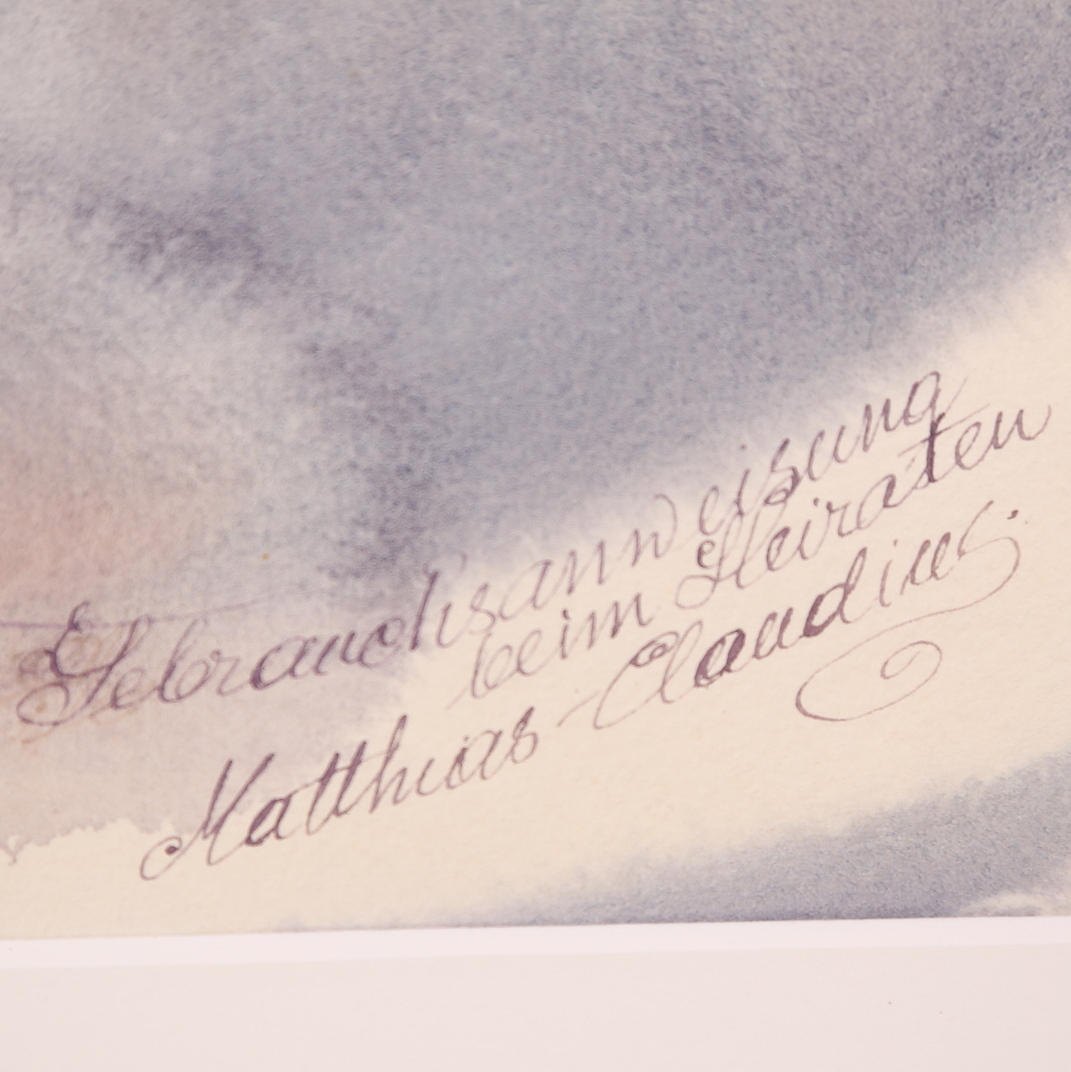 Gebrauchsanweisung
beim Heiraten
Matthias Claudius.